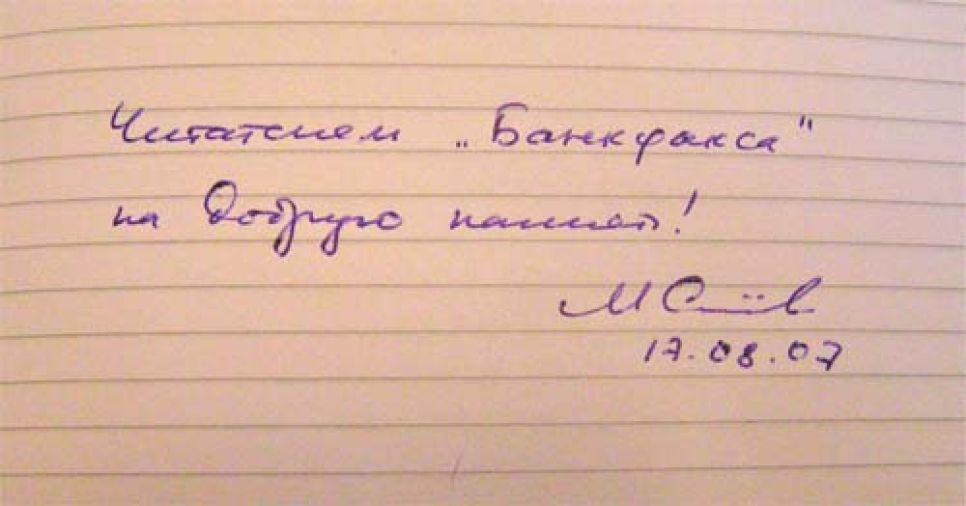 Читателям „Банкфакса"
на добрую память!
М
17.08.07